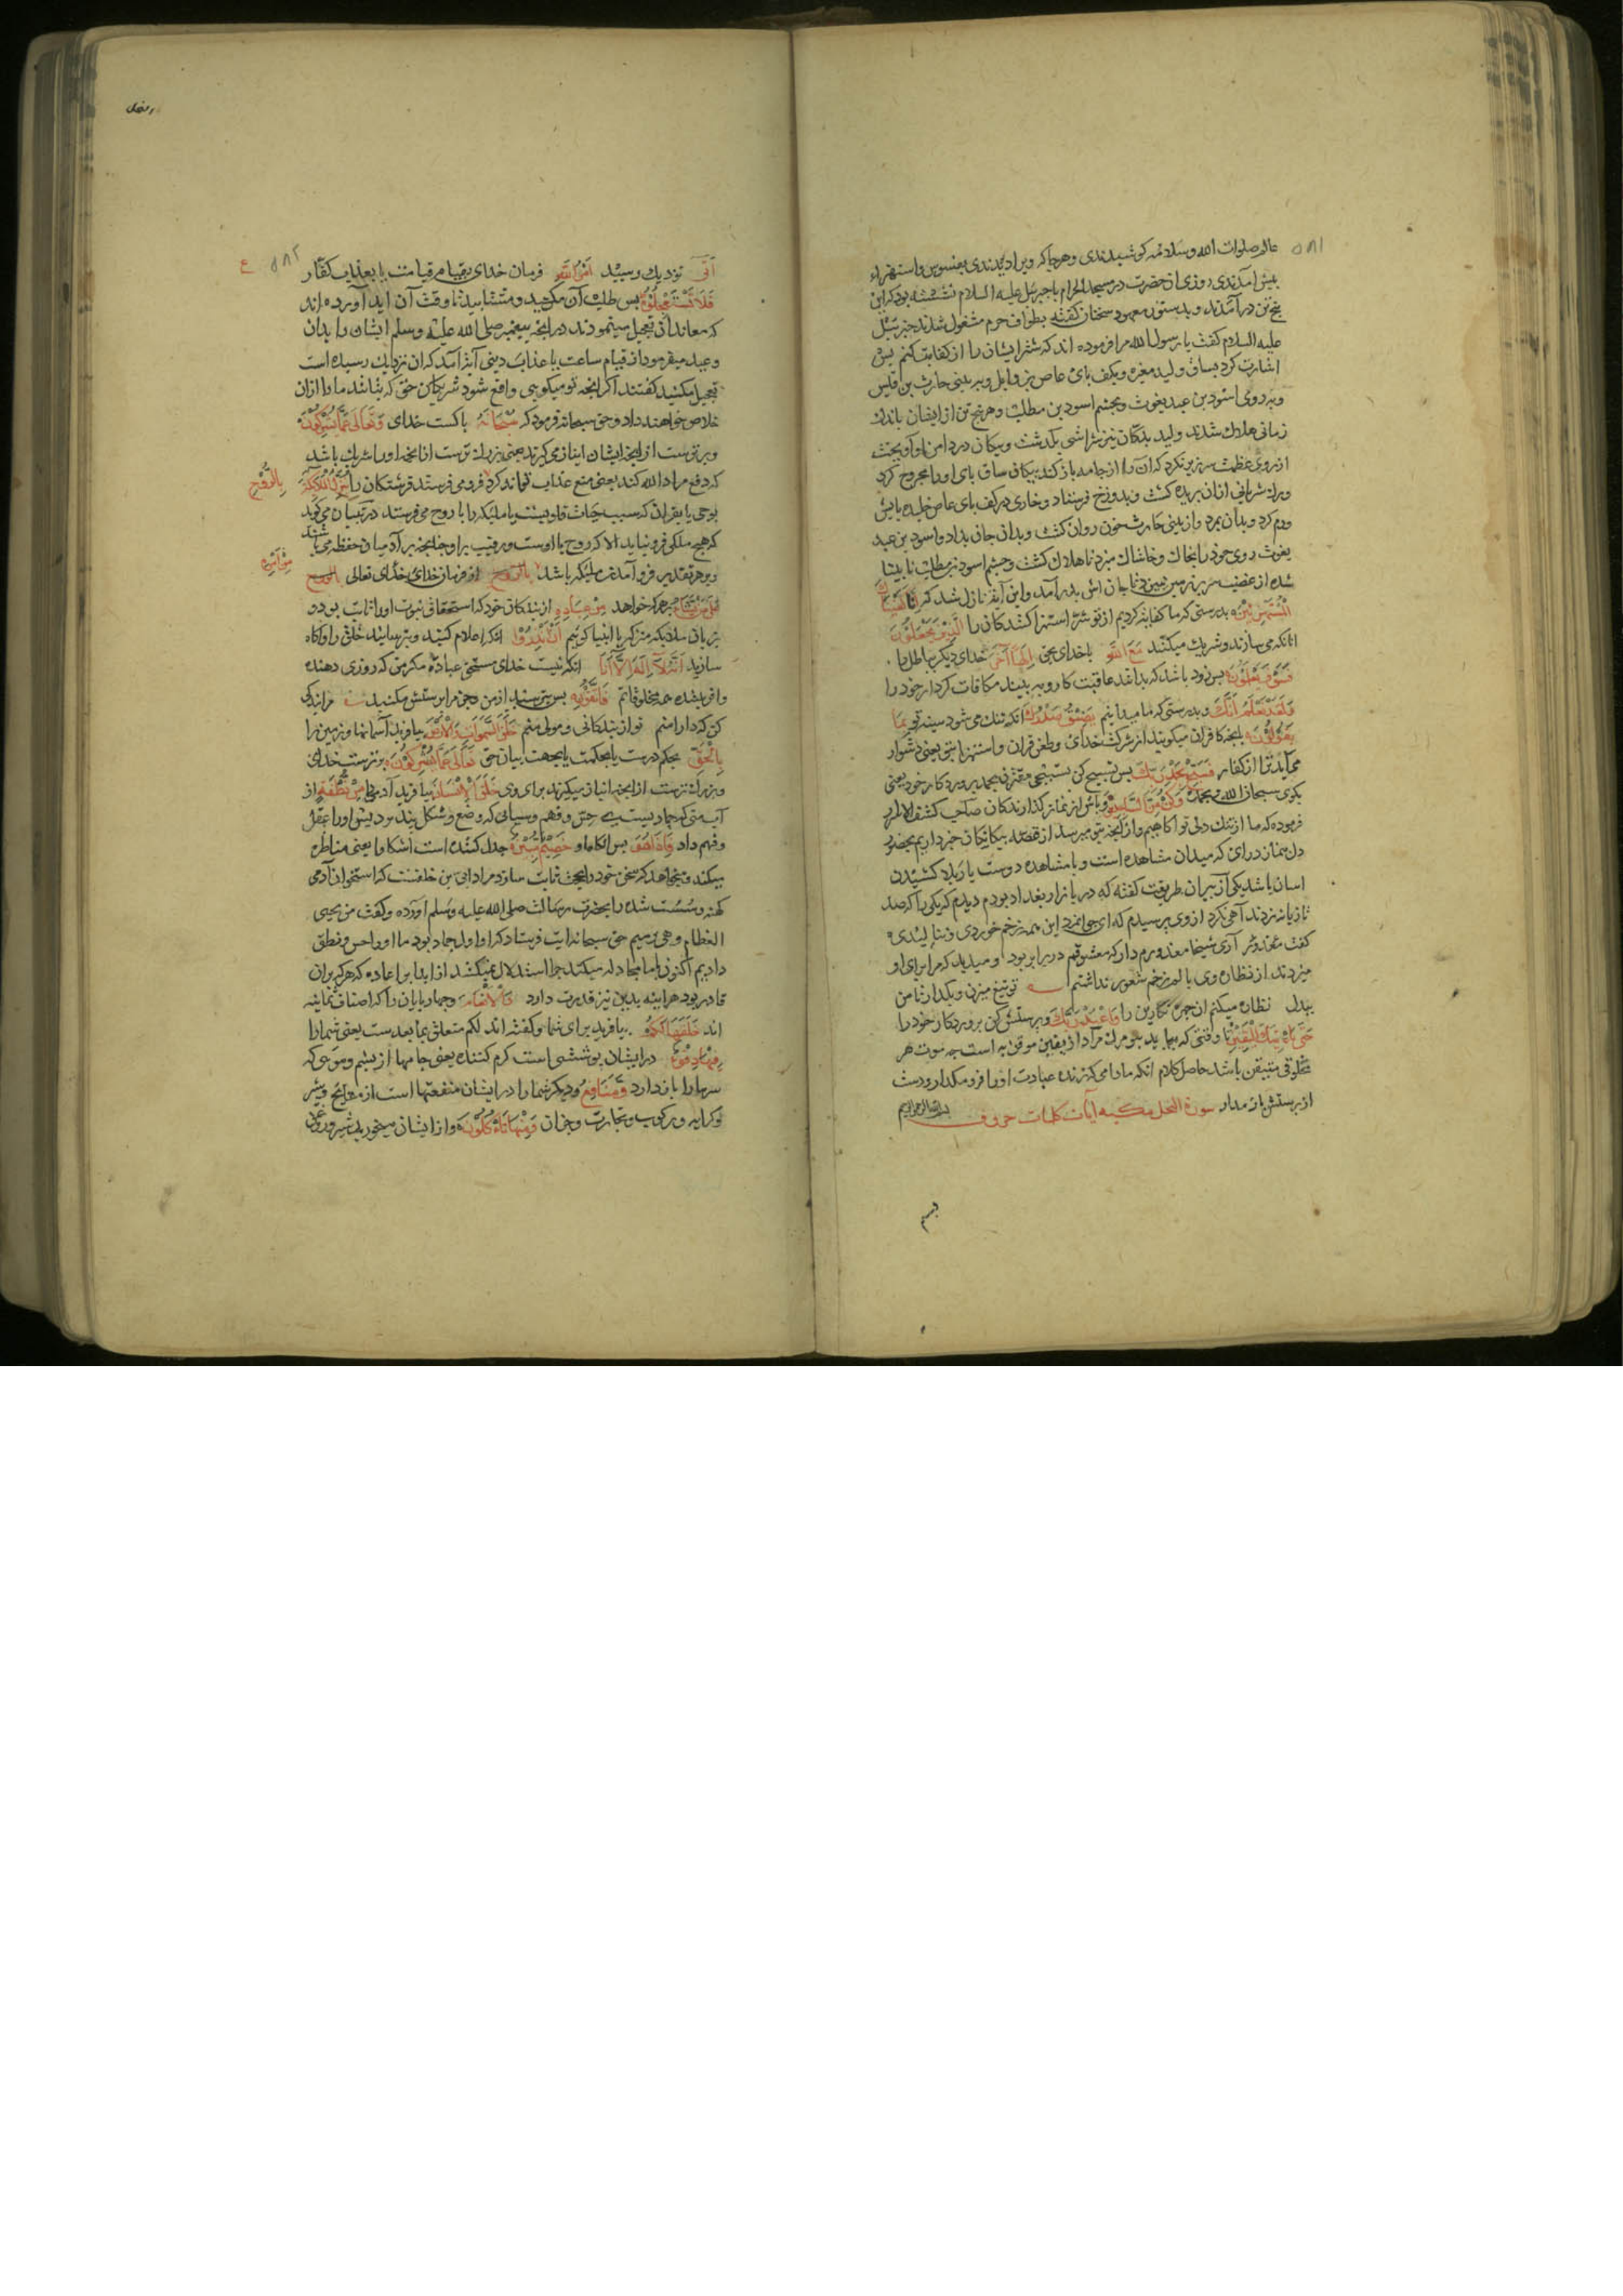 ۵۸۱
عالم صلوات الله وسلامه كوشيدندى وهرجا كه ويرا ديدندى بفسوس واستهزاء
پیش آمدندی روزی آن حضرت در مسجد الحرام با جبرئيل عليه السلام نشسته بود كه اين
پنج تن در آمدند و بدستور معهود سخنان كفته بطواف حرم مشغول شدند جبرئيل
عليه السلام كفت يا رسول الله مرا فرموده اند كه شر ايشان را از كفايت كنم پس
اشارت كرد بساق وليد مغيره وبكف پای عاص بن وايل وبه بينی حارث بن قيس
وبه روی اسود بن عبد يغوث وبچشم اسود بن مطلب وهر پنج تن از ايشان باندك
زمانی هلاك شدند وليد بدكان تير تراشی بگذشت وپيكان در دامن او آويخت
از روی عظمت سر زير نكرد كه آن را از جامه باز كند پيكان ساق پای او را مجروح كرد
ورك شريانی از ان بريده كشت وبدوزخ فرستاد وخاری در كف پای عاص خليده پايش
ورم كرد وبدان بمرد واز بينی حارث خون روان كشت وبدان جان بداد واسود بن عبد
يغوث روی خود را بخاك وخاشاك ميزد تا هلاك كشت وچشم اسود بن مطلب نابينا
شده از غضب سر بر زمين ميزد تا جان اش بدر آمد واين آيه نازل شد كه إنا كفيناك
المستهزئين بدرستی كه ما كفايت كرديم از تو شر استهزا كنندكان را الذين يجعلون
آنانكه می سازند وشريك ميكنند مع الله با خدای بحق إلها آخر خدای ديكر بباطل را
فسوف يعلمون پس زود باشد كه بدانند عاقبت كار وبه بينند مكافات كردار خود را
ولقد نعلم أنك وبدرستی كه ما ميدانيم يضيق صدرك آنكه تنك می شود سينه تو بما
يقولون بانچه كافران ميكويند از شرك خدای وطعن قرآن واستهزا بتو يعنی دشوار
می آيد ترا از كفار فسبح بحمد ربك پس تسبيح كن تسبيحی مقترن بحمد پروردكار خود يعنی
بكوی سبحان الله وبحمده وكن من الساجدين وباش از نماز كذارندكان صاحب كشف الاسرار
فرموده كه ما از تنك دلی تو آكاهيم واز آنچه بتو ميرسد از قصه بيكانكان خبر داريم بحضور
دل بنماز درای كه ميدان مشاهده است وبا مشاهده دوست بار بلا كشيدن
آسان باشد يكی از پيران طريقت كفته كه در بازار بغداد بودم ديدم كه يكی را كه صد
تازيانه زدند آهی نكرد از وی پرسيدم كه ای جوانمرد اين همه زخم خوردی وننا ليدی
كفت آری شيخا معذورم دار كه معشوقم در برابر بود وميديد كه مرا برای او
ميزدند از نظاره وی بالم زخم شعور نداشتم تو تيغ ميزن وبگذار تا من
بيدل نظاره ميكنم آن چهره نكارين را واعبد ربك وپرستش كن پروردكار خود را
حتى يأتيك اليقين تا وقتی كه بيايد بتو مرك مراد از يقين موقن به است چه موت هر
مخلوقی متيقن باشد حاصل كلام آنكه مادامی كه زنده عبادت او را فرو مكذار ودست
از پرستش باز مدار سورة النحل مكية آيات كلمات حروف بسم الله الرحمن الرحيم
۵۸۲ ع
أتى نزديك رسيد أمر الله فرمان خدای بقيام قيامت يا بعذاب كفار
فلا تستعجلوه پس طلب آن مكنيد ومشتابيد تا وقت آن ايد آورده اند
كه معاندان تعجيل مينمودند در آنچه پيغمبر صلى الله عليه وسلم ايشان را بدان
وعيد ميفرمود از قيام ساعت يا عذاب دنيی آيت آمد كه آن نزديك رسيده است
تعجيل مكنيد كفتند اكر آنچه تو ميكويی واقع شود شريكان حق كه بتانند ما را از ان
خلاص خواهند داد وحق سبحانه فرمود كه سبحانه پاكست خدای وتعالى عما يشركون
وبرترست از آنچه ايشان انباز می كيرند يعنی بزرك ترست از آنكه او را شريك باشد
كه دفع مراد الله كند يعنی منع عذاب تواند كرد فرو می فرستد فرشتكان را ينزل الملائكة بالروح
بوحی يا بقرآن كه سبب حيات قلوبست يا ملائكه را با روح می فرستد در تبيان می كويد
كه هيچ ملكی فرو نيايد الا كه روح با اوست ورقيب بر او چنانچه بر آدميان حفظه می باشند
وبر هر تقدير فرو آمدن ملائكه باشد بالروح از فرمان خدای خدای تعالى من أمره
على من يشاء بر هر كه خواهد من عباده از بندكان خود كه استحقاق نبوت او را ثابت بود و
بزبان ملائكه منزل با انبيا كوئيم أن أنذروا آنكه اعلام كنيد وبترسانيد خلق را وآكاه
سازيد أنه لا إله إلا أنا آنكه نيست خدای مستحق عبادت مكر من كه روزی دهنده
وآفريننده همه مخلوقاتم فاتقون پس بترسيد از من وجز مرا پرستش مكنيد مرا بندكی
كن كه دارا منم تو از بندكانی ومولی منم خلق السموات والأرض بيافريد آسمانها وزمين را
بالحق بحكم درست يا بحكمت يا بجهت بيان حق تعالى عما يشركون برترست خدای
وبزرك ترست از آنچه انباز ميكيرند برای وی خلق الإنسان بيافريد آدمی را من نطفة از
آب منی كه جماديست بی حس وفهم وسيالی كه وضع وشكل نپذيرد پس او را عقل
وفهم داد فإذا هو پس آنكاه او خصيم مبين جدل كننده است آشكارا يعنی مناظره
ميكند وميخواهد كه سخن خود را بحجت ثابت سازد مراد ابی بن خلفست كه استخوان آدمی
كهنه وسست شده را بحضرت رسالت صلى الله عليه وسلم آورده وكفت من يحيى
العظام وهي رميم حق سبحانه آيت فرستاد كه او اول جماد بود ما او را حس ونطق
داديم اكنون با ما مجادله ميكند چرا استدلال نميكند از ابدا بر اعاده كه هر كه بر ان
قادر بود هر آينه بدين نيز قدرت دارد والأنعام وچهار پايان را كه اصناف ثمانيه
اند خلقها لكم بيافريد برای شما وكفته اند لكم متعلق بما بعدست يعنی شما را
فيها دفء در ايشان پوششی است كرم كننده يعنی جامها از پشم وموی كه
سرما را باز دارد ومنافع وديكر شما را در ايشان منفعتها است از نتايج وشير
وكرايه وركوب وتجارت وجز آن ومنها تأكلون واز ايشان ميخوريد شير وروغن